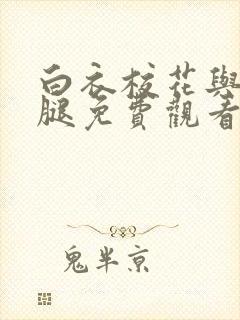 白衣校花與
腿免費觀看
鬼半京